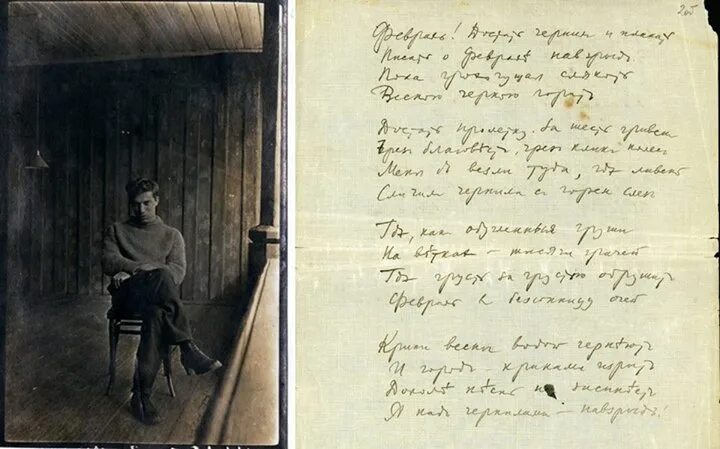 Февраль! Достать чернилъ и плакать
Писать о Февралѣ навзрыдъ.
Пока грохочущая слякоть
Весною черною горитъ
Достать пролетку. За шесть гривенъ
Чрезъ благовѣстъ, чрезъ кликъ колесъ
Меня бъ везли туда, гдѣ ливень
Сличилъ чернила съ горем слезъ
Гдѣ, какъ обугленныя груши
На вѣткахъ — тысячи грачей
Гдѣ грусть за грустью обрушитъ
Февраль в безсонницу очей
Крики весны водой чернѣютъ
И городъ — криками изрытъ
Доколѣ пѣснь не засинѣетъ
Я надъ чернилами — навзрыдъ!